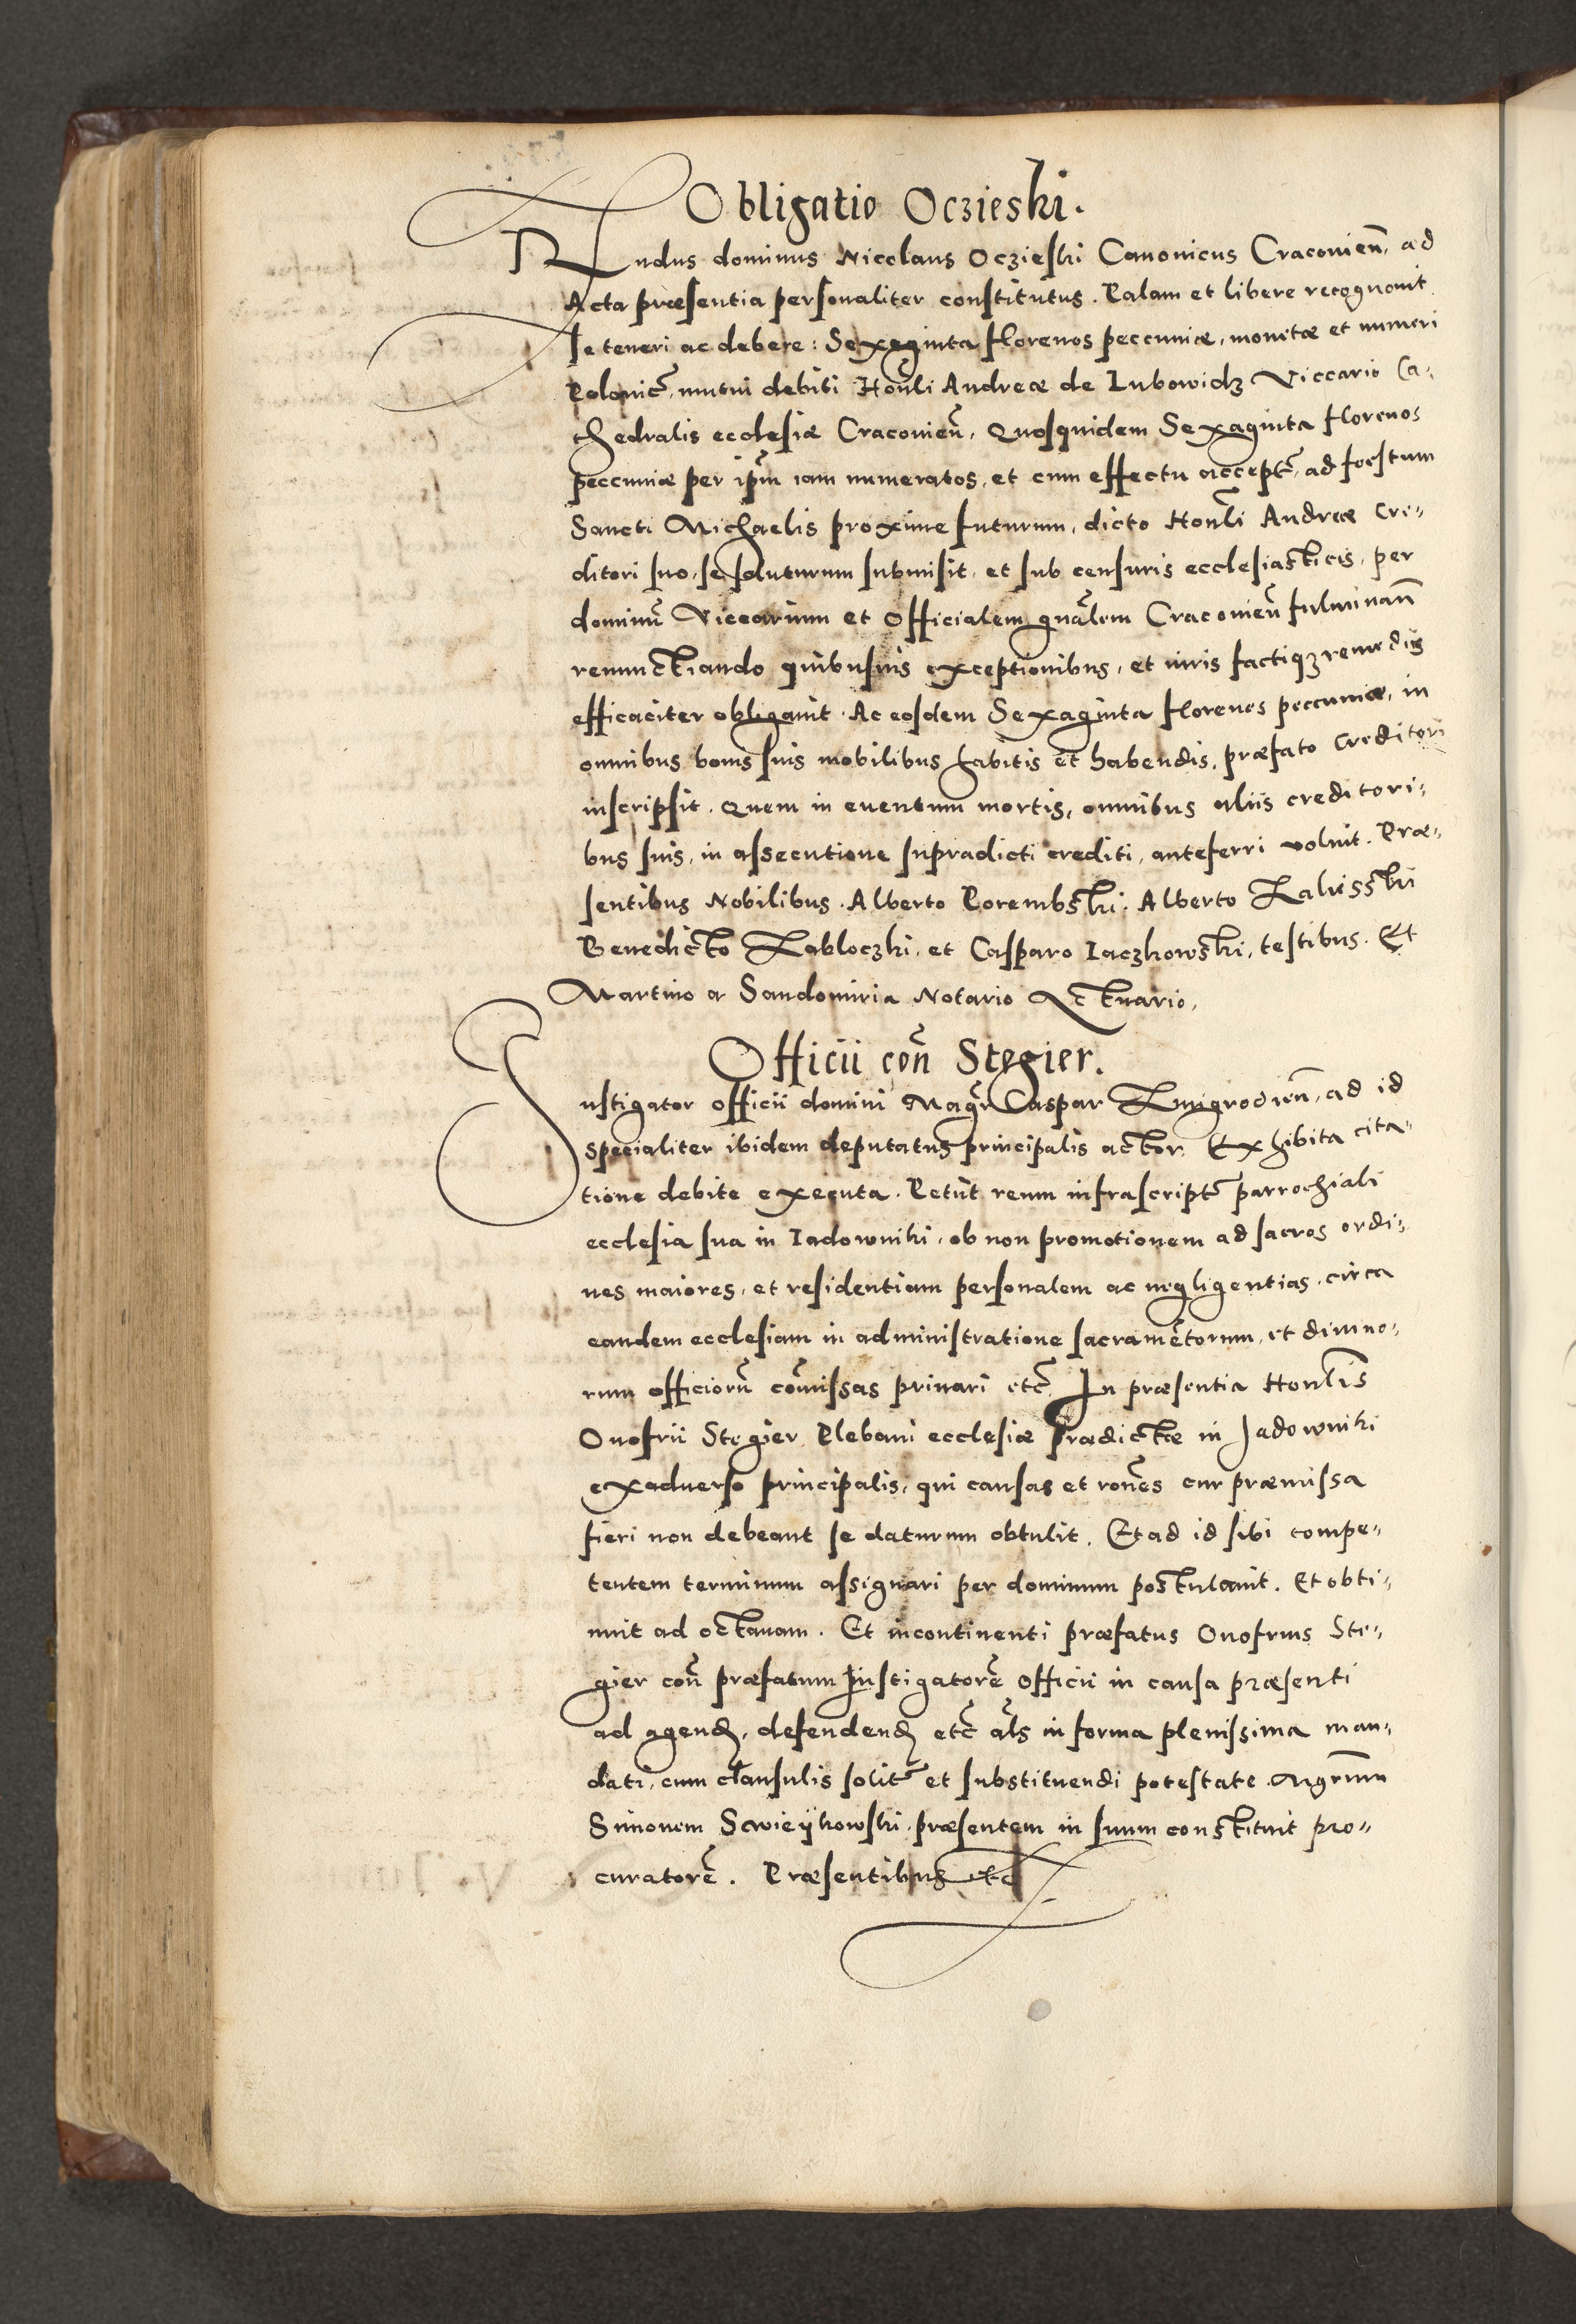 Obligatio Oczieski.
Rndus dominus Nicolaus Oczieski Canonicus Craconien̄, ad
Acta præsentia personaliter constitutus. Palam et libere recognouit
se teneri ac debere: Sexaginta florenos peccuniæ, monetæ et numeri
Polonic̃, mutui debiti Hon̄li Andreæ de Lubowidz Viccario Ca-
thedralis ecclesiæ Craconien̄, Quosquidem Sexaginta florenos
peccuniæ per ip̄m iam numeratos, et cum effectu accept̃, ad foestum
Sancti Michaelis proxime futurum, dicto Hon̄li Andreæ cre-
ditori suo, se soluturum submisit, et sub censuris ecclesiasticis, per
dominū Viccarium et Officialem gn̄alem Craconien̄ fulminan̄
renunctiando quibusuis exceptionibus, et iuris factiqз remediis
efficaciter obligauit. Ac eosdem Sexaginta florenos peccuniæ, in
omnibus bonis suis mobilibus habitis et habendis, præfato creditori
inscripsit. Quem in euentum mortis, omnibus aliis creditori-
bus suis, in assecutione supradicti crediti, anteferri voluit. Præ-
sentibus Nobilibus. Alberto Porembski. Alberto Zalisski
Benedicto Zabloczki, et Casparo Iaczkowski, testibus. Et
Martino a Sandomiria Notario Actuario,
Officii con̄ Stegier.
Instigator officii domini Magr̄ Caspar Zmigrodien̄, ad id
specialiter ibidem deputatus principalis actor. Exhibita cita-
tione debite executa. Petiit reum infrascript̃ parrochiali
ecclesia sua in Iadowniki, ob non promotionem ad sacros ordi-
nes maiores, et residentiam personalem ac negligentias, circa
eandem ecclesiam in administratione sacramētorum, et diuino-
rum officiorū com̄issas priuari etc̃ In præsentia Honl̄is
Onofrii Stegier Plebani ecclesiæ prædictæ in Jadowniki
exaduerso principalis, qui causas et ron̄es cur præmissa
fieri non debeant se daturum obtulit. Et ad id sibi compe-
tentem terminum assignari per dominum postulauit. Et obti-
nuit ad octauam. Et incontinenti præfatus Onofrius Ste-
gier con̄ præfatum Instigatorē officii in causa præsenti
ad agend, defendend etc̃ al̄s in forma plenissima man-
dati, cum clausulis solit̃ et substituendi potestate. Mgr̄um
Simonem Scwieÿkowski præsentem in suum constituit pro-
curatorē. Præsentibus etc